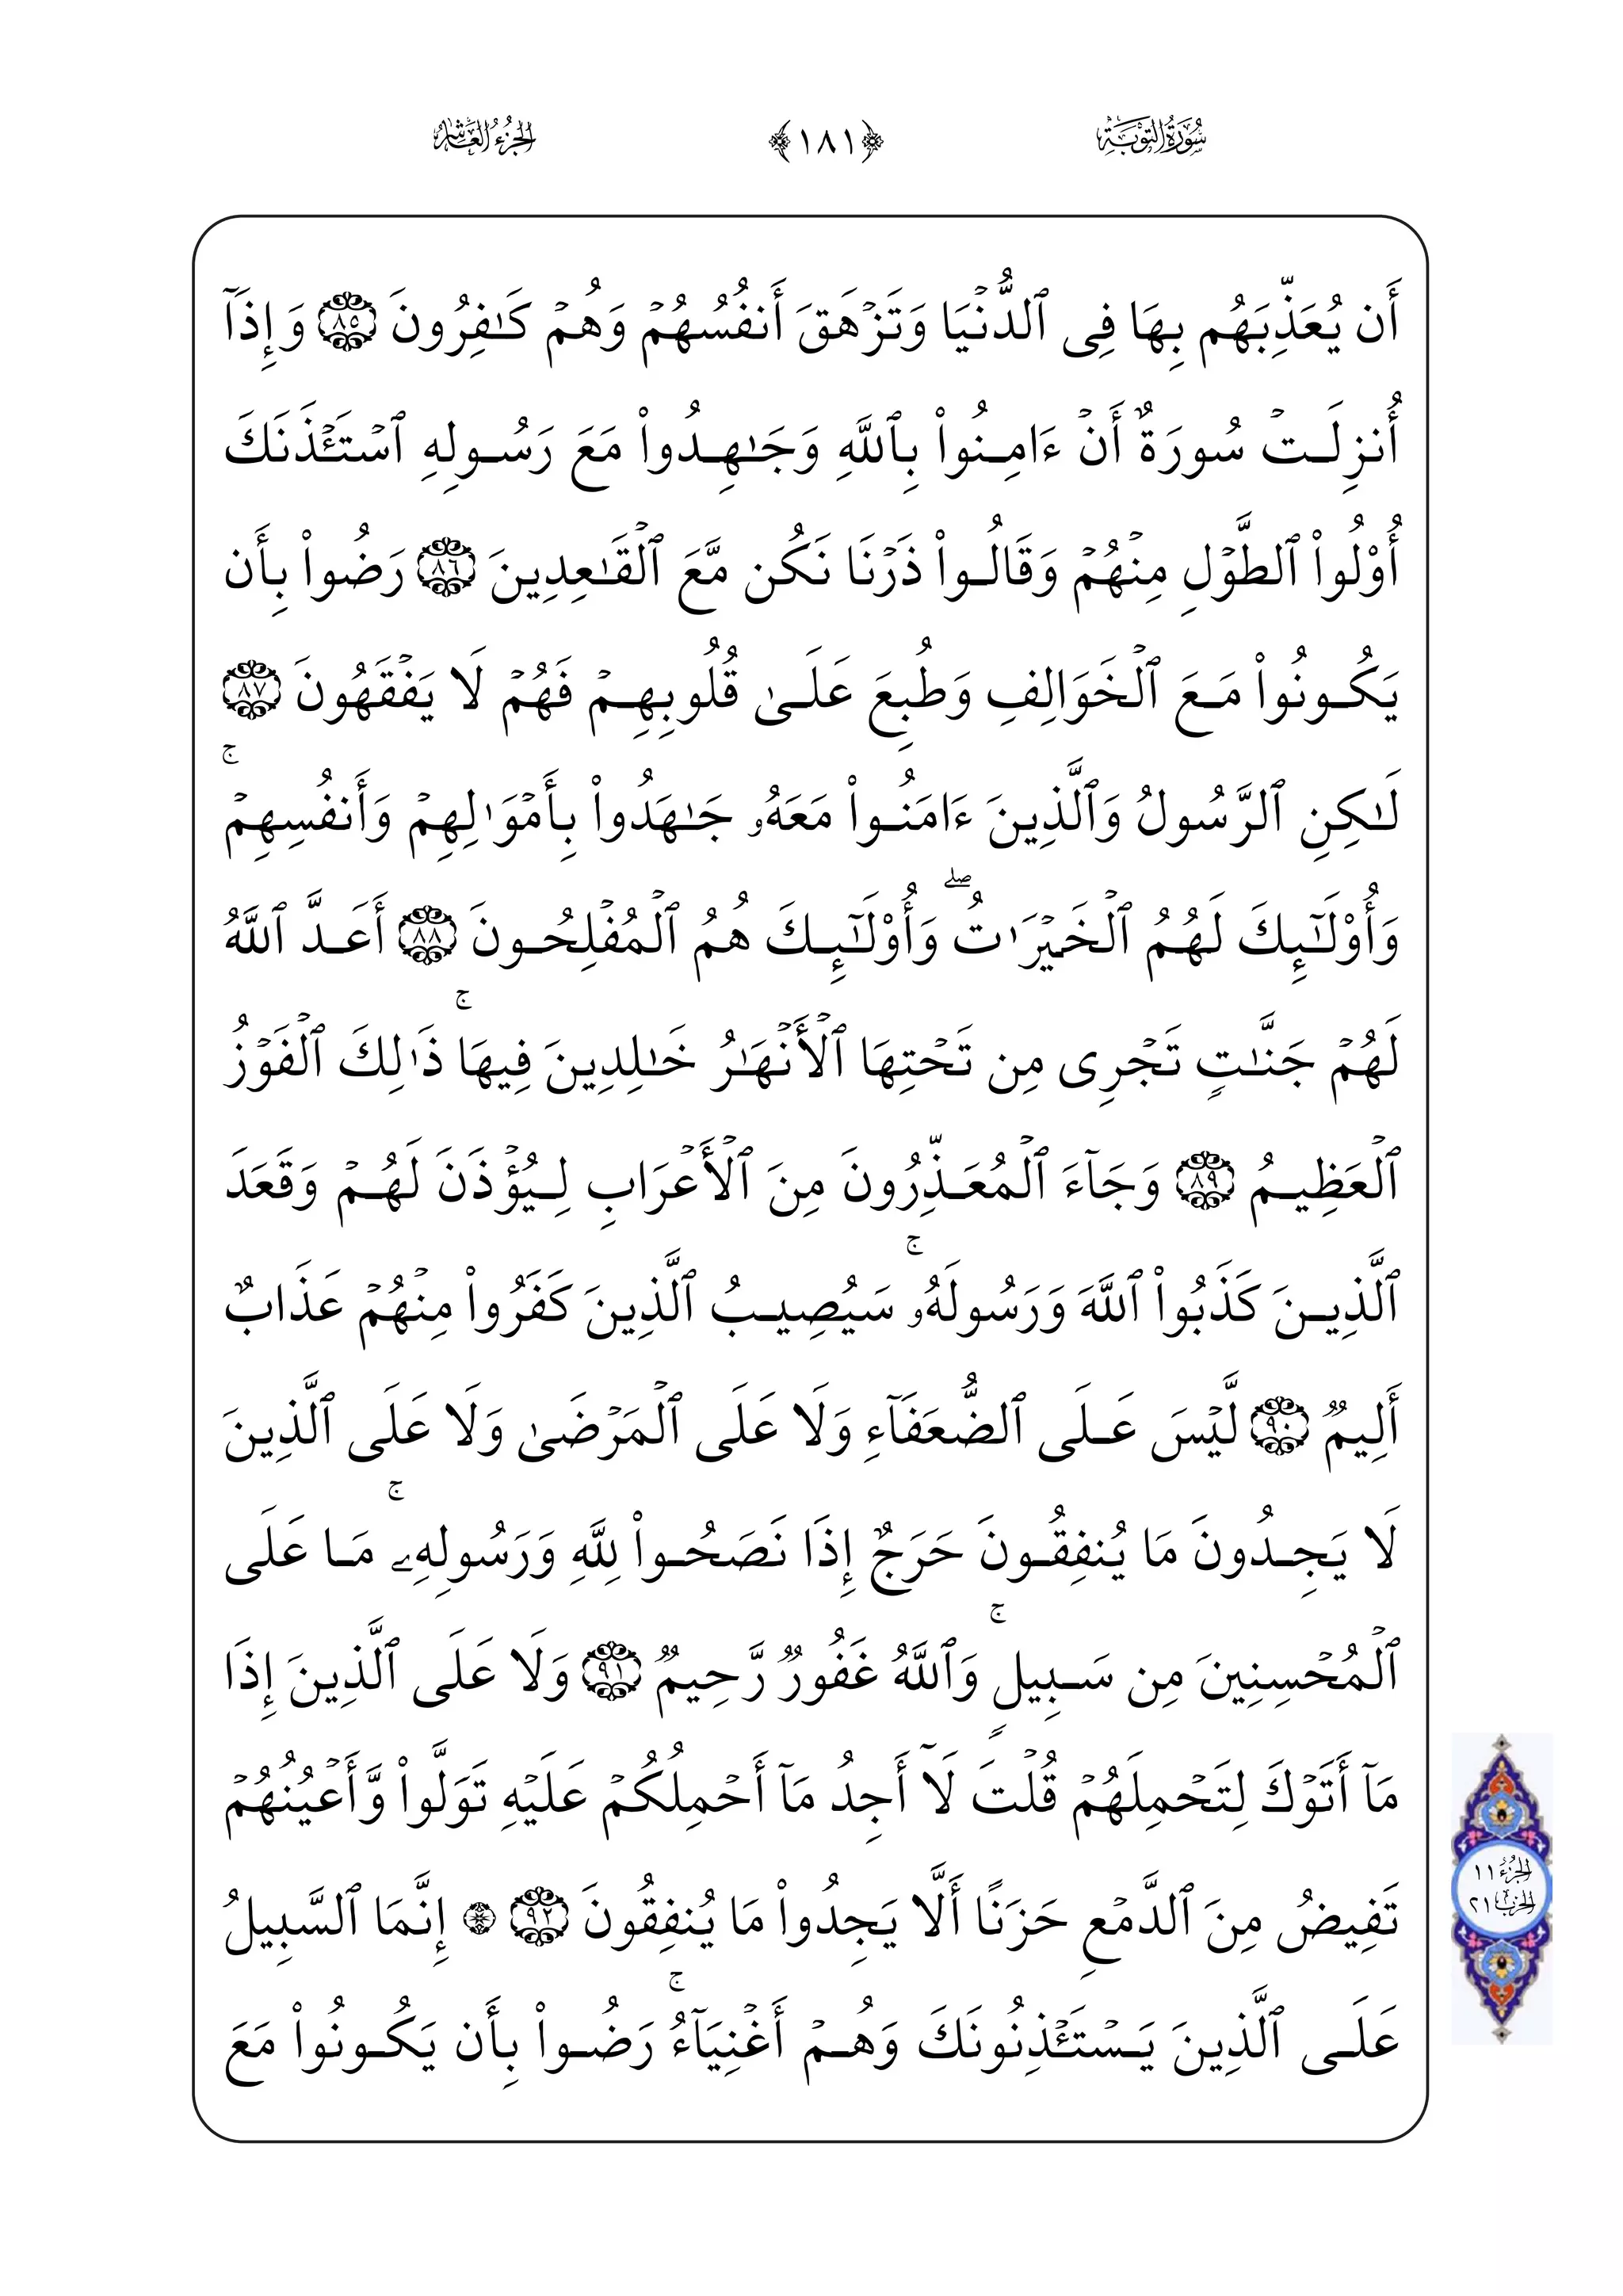 سُورَةُ التَّوْبَةِ ﴿١٨١﴾ الجُزْءُ العَاشِرُ
أَن يُعَذِّبَهُم بِهَا فِى ٱلدُّنْيَا وَتَزْهَقَ أَنفُسُهُمْ وَهُمْ كَـٰفِرُونَ ٨٥ وَإِذَآ
أُنزِلَتْ سُورَةٌ أَنْ ءَامِنُوا۟ بِٱللَّهِ وَجَـٰهِدُوا۟ مَعَ رَسُولِهِ ٱسْتَـْٔذَنَكَ
أُو۟لُوا۟ ٱلطَّوْلِ مِنْهُمْ وَقَالُوا۟ ذَرْنَا نَكُن مَّعَ ٱلْقَـٰعِدِينَ ٨٦ رَضُوا۟ بِأَن
يَكُونُوا۟ مَعَ ٱلْخَوَالِفِ وَطُبِعَ عَلَىٰ قُلُوبِهِمْ فَهُمْ لَا يَفْقَهُونَ ٨٧
لَـٰكِنِ ٱلرَّسُولُ وَٱلَّذِينَ ءَامَنُوا۟ مَعَهُۥ جَـٰهَدُوا۟ بِأَمْوَٰلِهِمْ وَأَنفُسِهِمْ ۚ
وَأُو۟لَـٰٓئِكَ لَهُمُ ٱلْخَيْرَٰتُ ۖ وَأُو۟لَـٰٓئِكَ هُمُ ٱلْمُفْلِحُونَ ٨٨ أَعَدَّ ٱللَّهُ
لَهُمْ جَنَّـٰتٍ تَجْرِى مِن تَحْتِهَا ٱلْأَنْهَـٰرُ خَـٰلِدِينَ فِيهَا ۚ ذَٰلِكَ ٱلْفَوْزُ
ٱلْعَظِيمُ ٨٩ وَجَآءَ ٱلْمُعَذِّرُونَ مِنَ ٱلْأَعْرَابِ لِيُؤْذَنَ لَهُمْ وَقَعَدَ
ٱلَّذِينَ كَذَبُوا۟ ٱللَّهَ وَرَسُولَهُۥ ۚ سَيُصِيبُ ٱلَّذِينَ كَفَرُوا۟ مِنْهُمْ عَذَابٌ
أَلِيمٌ ٩٠ لَّيْسَ عَلَى ٱلضُّعَفَآءِ وَلَا عَلَى ٱلْمَرْضَىٰ وَلَا عَلَى ٱلَّذِينَ
لَا يَجِدُونَ مَا يُنفِقُونَ حَرَجٌ إِذَا نَصَحُوا۟ لِلَّهِ وَرَسُولِهِۦ ۚ مَا عَلَى
ٱلْمُحْسِنِينَ مِن سَبِيلٍ ۚ وَٱللَّهُ غَفُورٌ رَّحِيمٌ ٩١ وَلَا عَلَى ٱلَّذِينَ إِذَا
مَآ أَتَوْكَ لِتَحْمِلَهُمْ قُلْتَ لَآ أَجِدُ مَآ أَحْمِلُكُمْ عَلَيْهِ تَوَلَّوا۟ وَّأَعْيُنُهُمْ
تَفِيضُ مِنَ ٱلدَّمْعِ حَزَنًا أَلَّا يَجِدُوا۟ مَا يُنفِقُونَ ٩٢ ۞ إِنَّمَا ٱلسَّبِيلُ
عَلَى ٱلَّذِينَ يَسْتَـْٔذِنُونَكَ وَهُمْ أَغْنِيَآءُ ۚ رَضُوا۟ بِأَن يَكُونُوا۟ مَعَ
الجُزْءُ ١١
الحِزْبُ ٢١